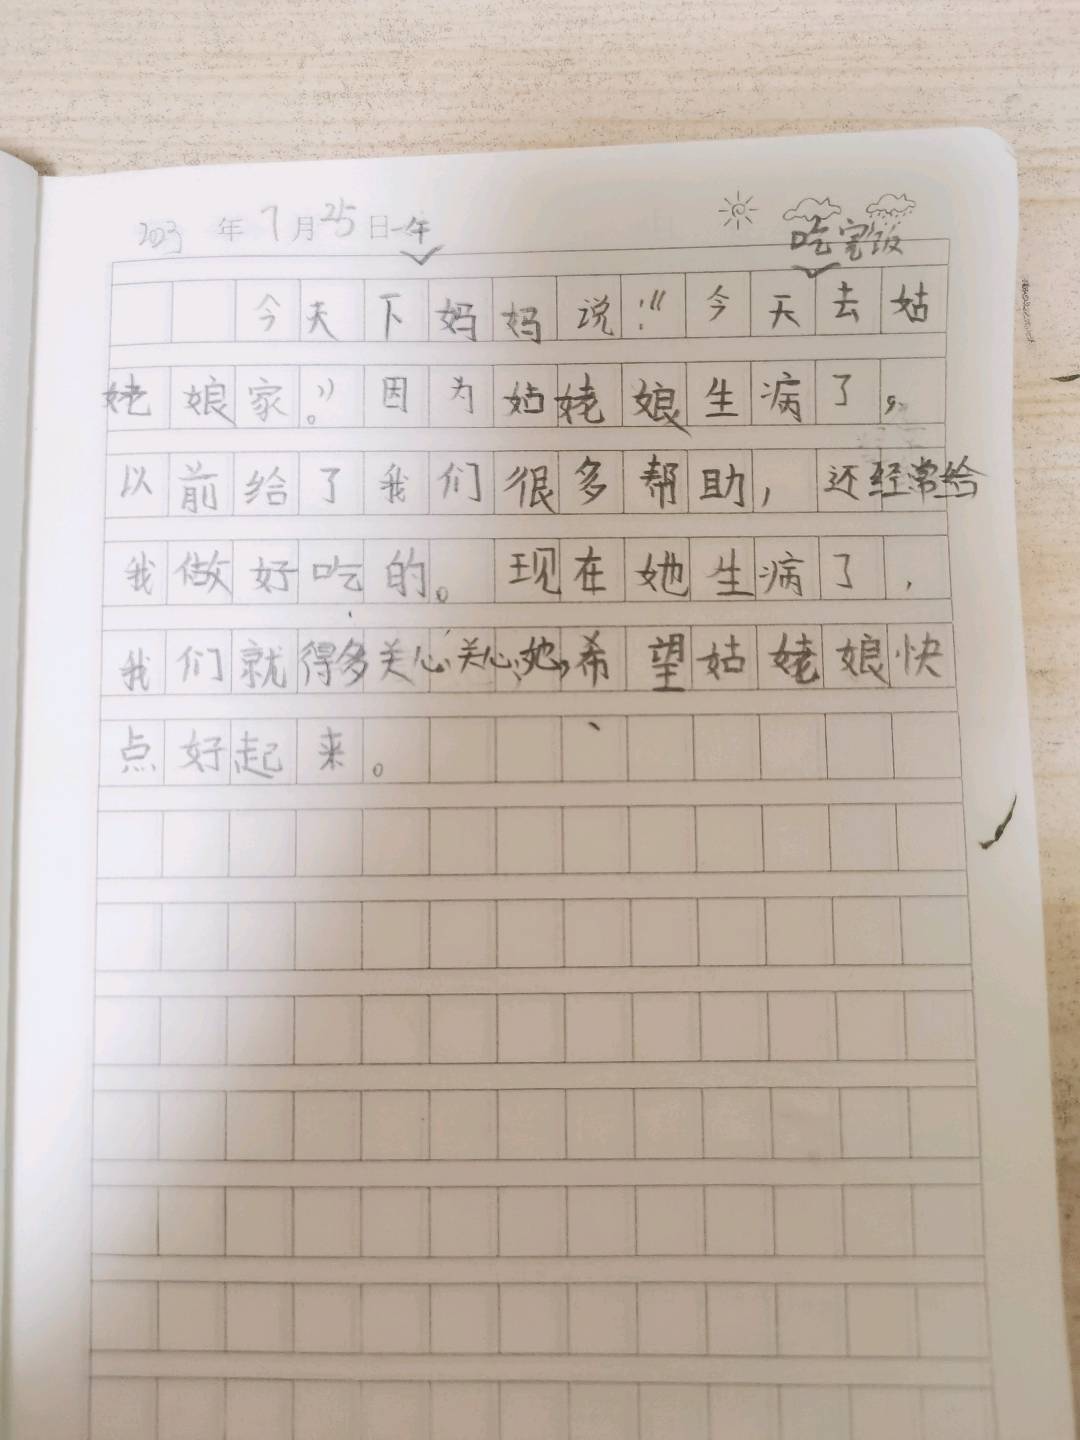 2023年7月25日 午
吃完饭
今天下妈妈说:“今天去姑
姥娘家。”因为姑姥娘生病了,
以前给了我们很多帮助,还经常给
我做好吃的。现在她生病了,
我们就得多关心、关心她,希望姑姥娘快
点好起来。